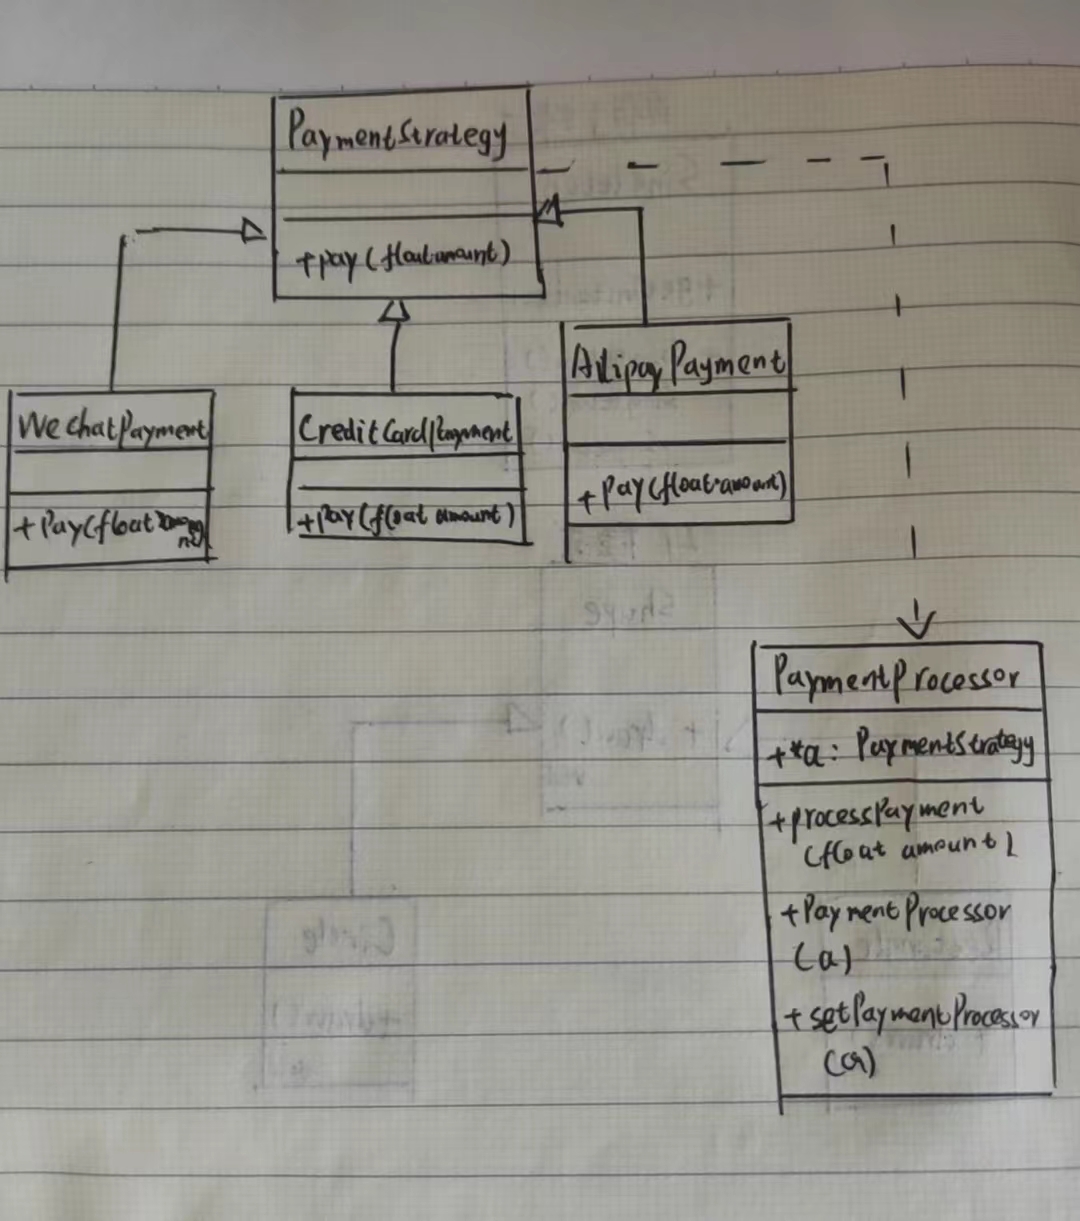 PaymentStrategy
+pay(float amount)
WeChatPayment
+Pay(float
CreditCardPayment
+pay(float amount)
AlipayPayment
+pay(float amount)
PaymentProcessor
+*a: PaymentStrategy
+processPayment
(float amount)
+PaymentProcessor
(a)
+setPaymentProcessor
(a)